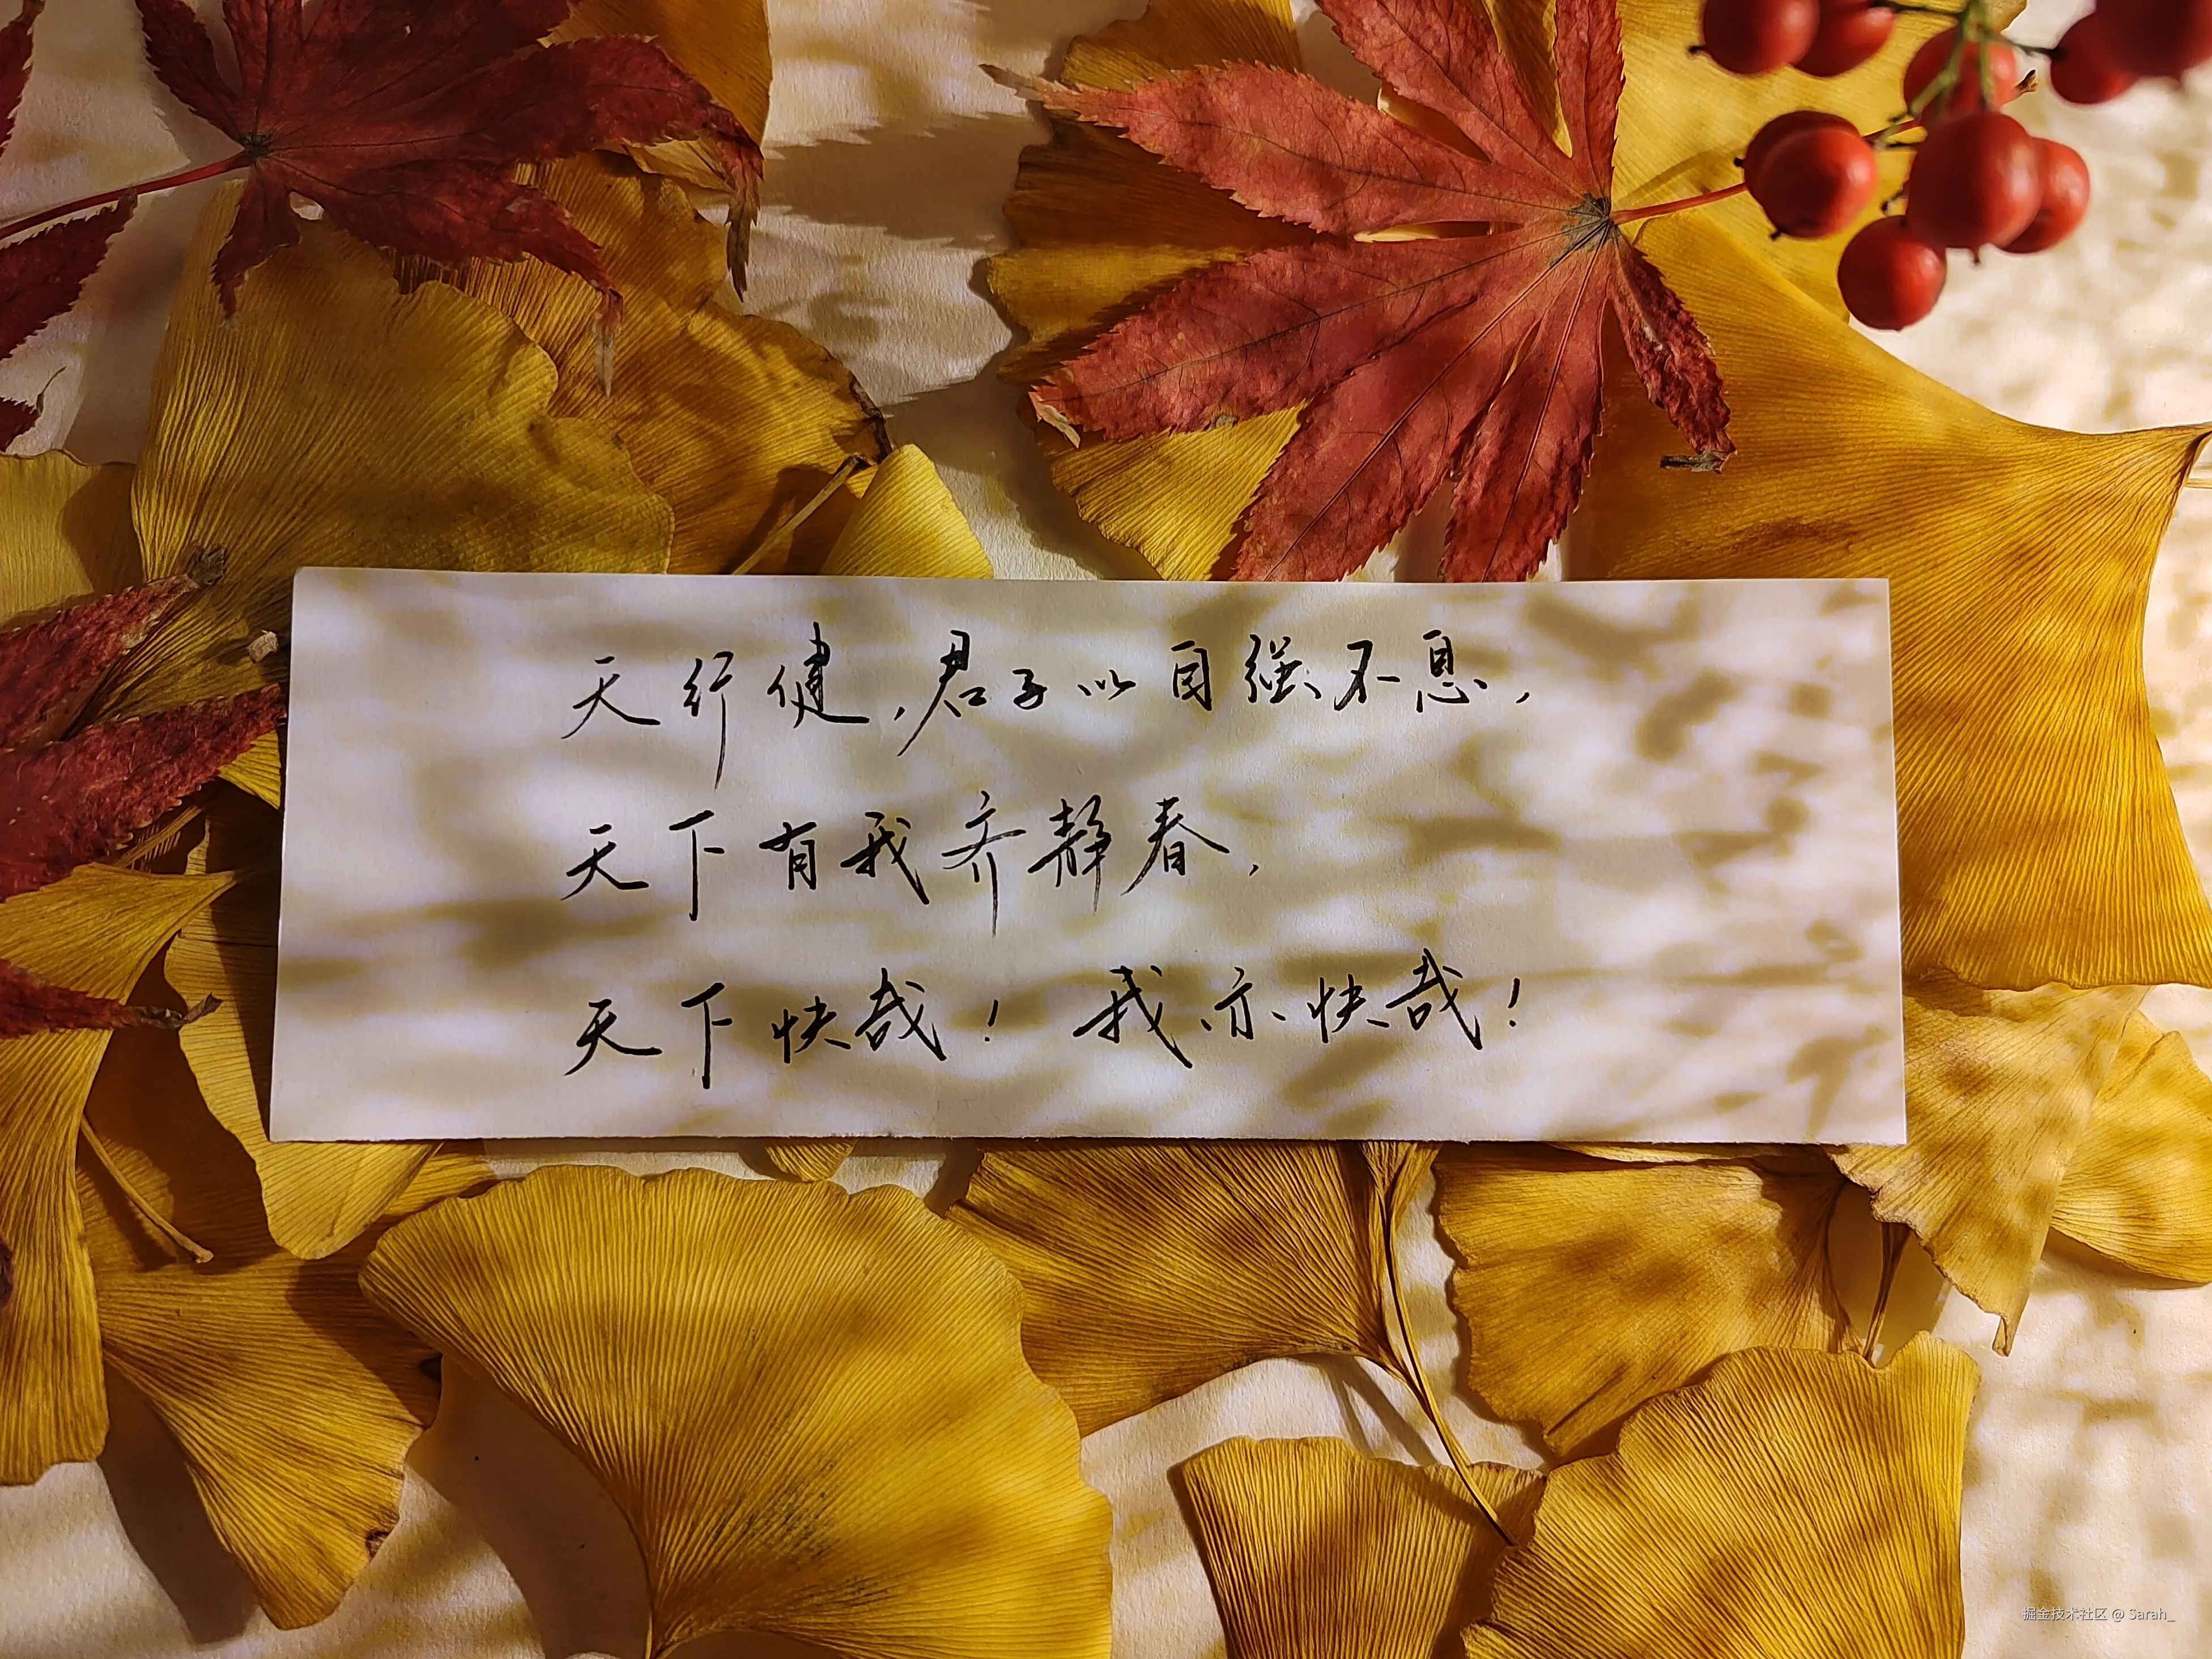 天行健,君子以自强不息,
天下有我齐静春,
天下快哉! 我亦快哉!
掘金技术社区 @ Sarah_